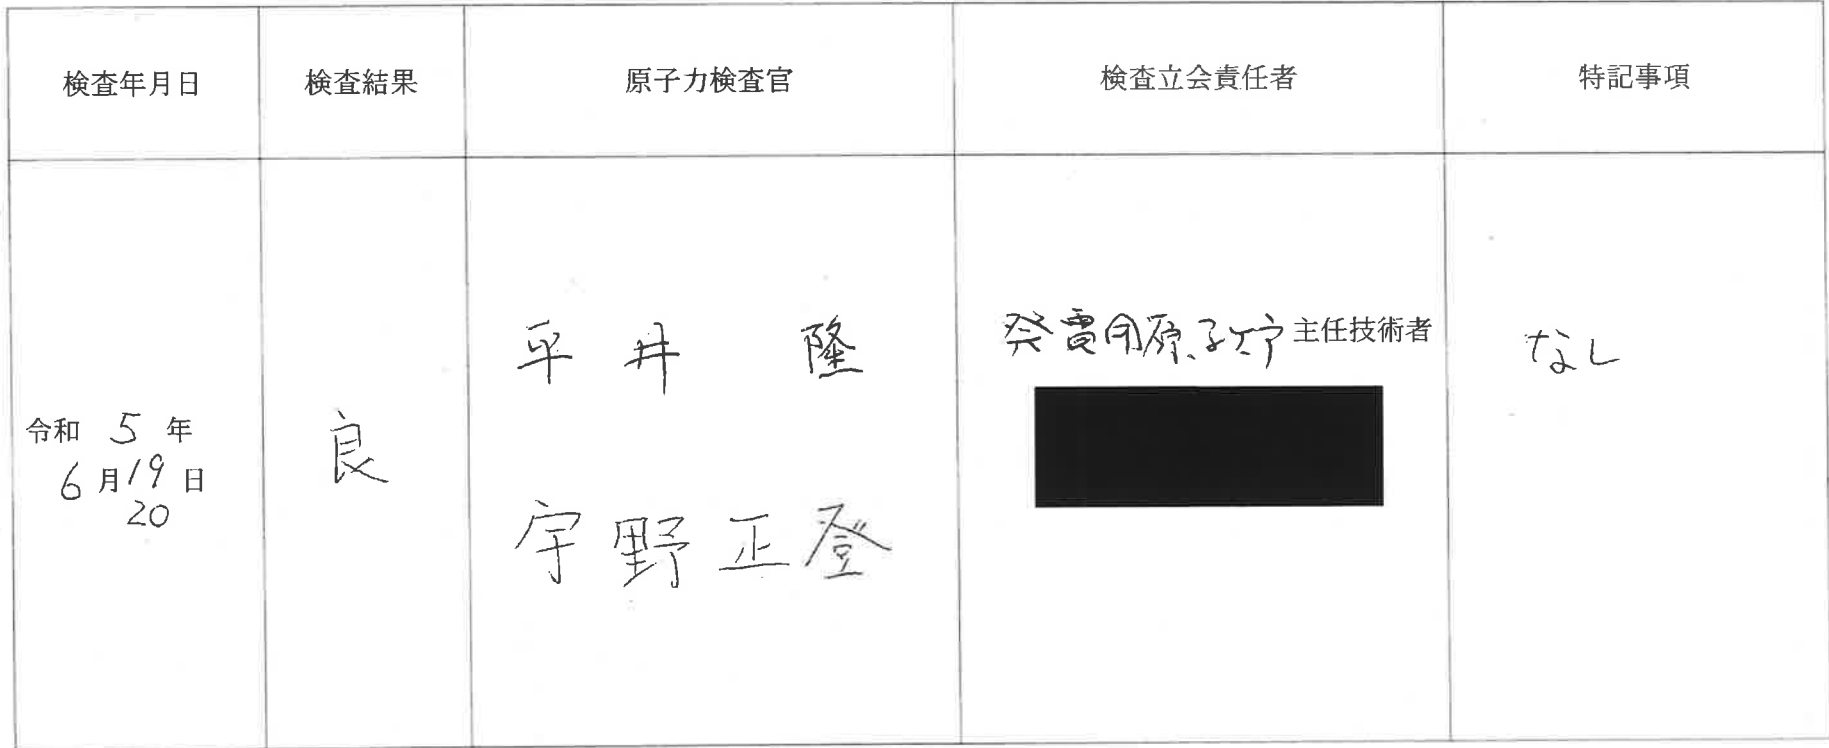 検査年月日
検査結果
原子力検査官
検査立会責任者
特記事項
令和 5 年
6 月 19 日
20
良
平井 隆
宇野正登
発電用原子炉主任技術者
なし